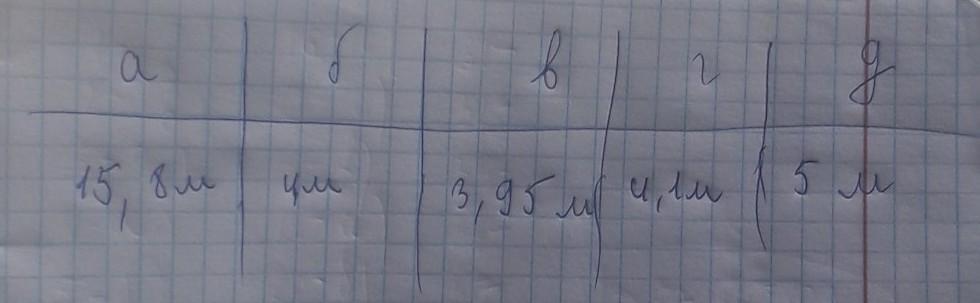 а б в г д
15,8м 4м 3,95м 4,1м 5 м